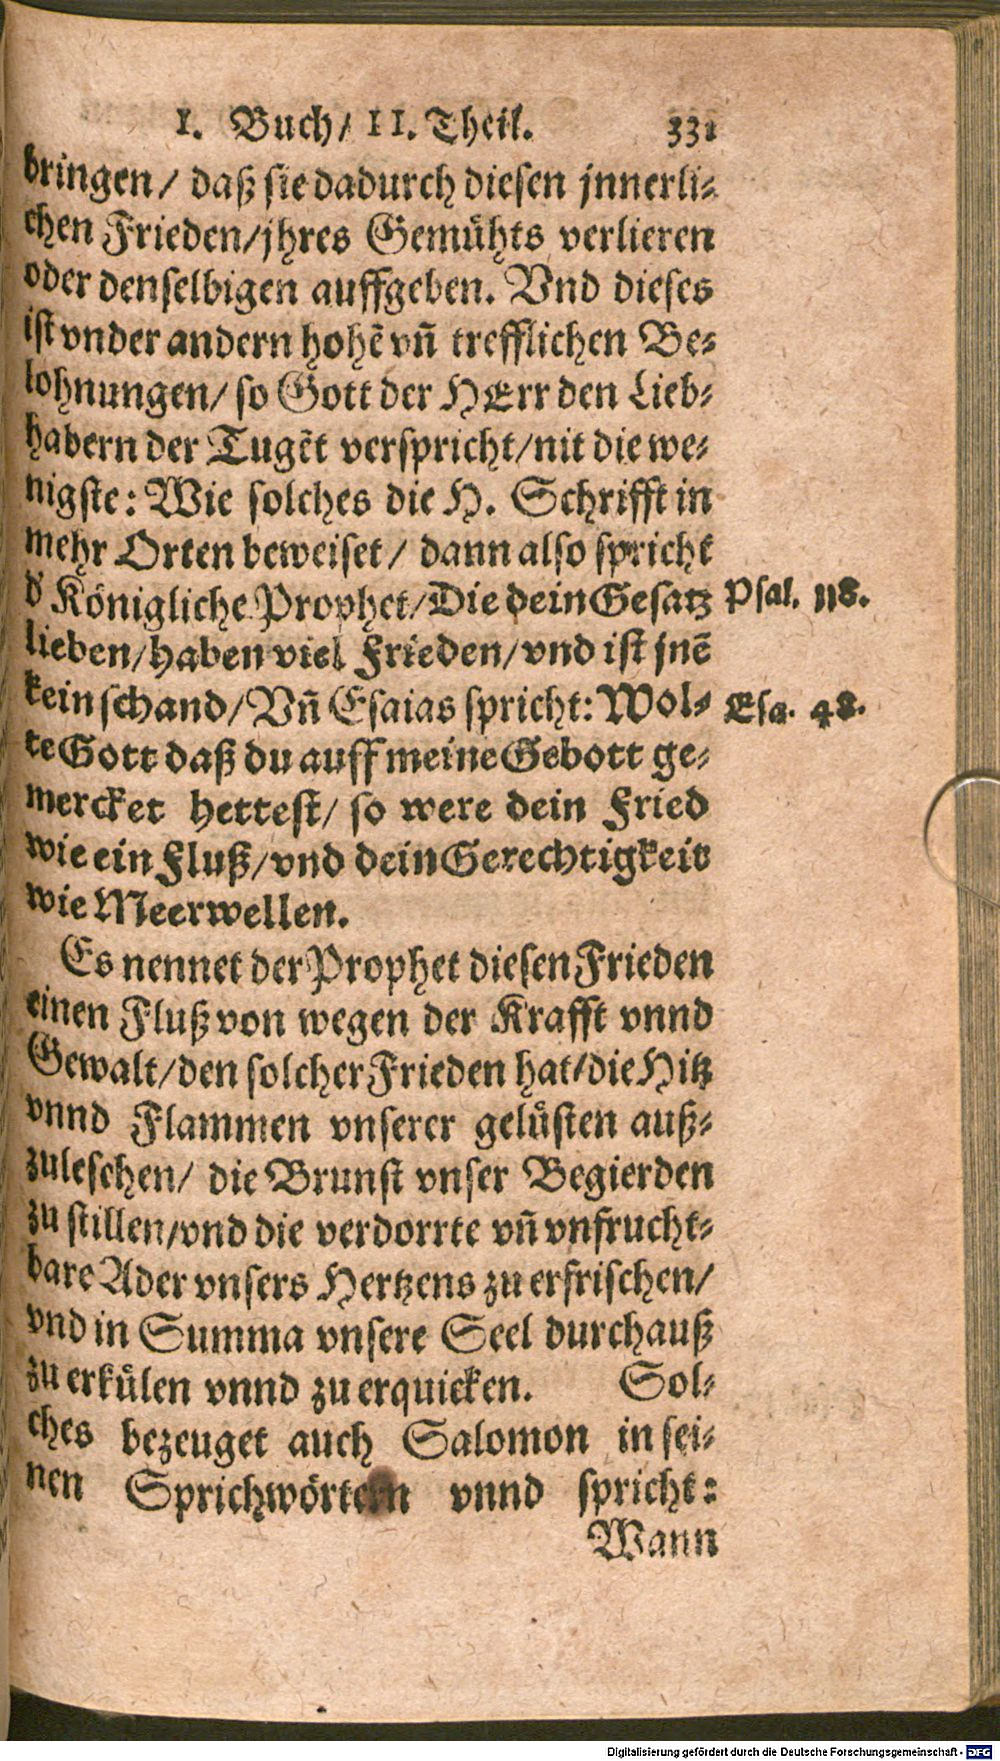 I. Buch/ II. Theil. 331
bringen/ daß sie dadurch diesen jnnerli-
chen Frieden/jhres Gemühts verlieren
oder denselbigen auffgeben. Vnd dieses
ist vnder andern hohẽ vñ trefflichen Be-
lohnungen/ so Gott der HErr den Lieb-
habern der Tugẽt verspricht/nit die we-
nigste: Wie solches die H. Schrifft in
mehr Orten beweiset/ dann also spricht
d' Königliche Prophet/Die dein Gesatz Psal. 118.
lieben/haben viel Frieden/vnd ist jnẽ
kein schand/Vñ Esaias spricht: Wol- Esa. 48.
te Gott daß du auff meine Gebott ge-
mercket hettest/ so were dein Fried
wie ein Fluß/vnd dein Gerechtigkeit
wie Meerwellen.
Es nennet der Prophet diesen Frieden
einen Fluß von wegen der Krafft vnnd
Gewalt/den solcher Frieden hat/die Hitz
vnnd Flammen vnserer gelüsten auß-
zuleschen/ die Brunst vnser Begierden
zu stillen/vnd die verdorrte vñ vnfrucht-
bare Ader vnsers Hertzens zu erfrischen/
vnd in Summa vnsere Seel durchauß
zu erkülen vnnd zu erquicken. Sol-
ches bezeuget auch Salomon in sei-
nen Sprichwörtern vnnd spricht:
Wann
Digitalisierung gefördert durch die Deutsche Forschungsgemeinschaft - DFG